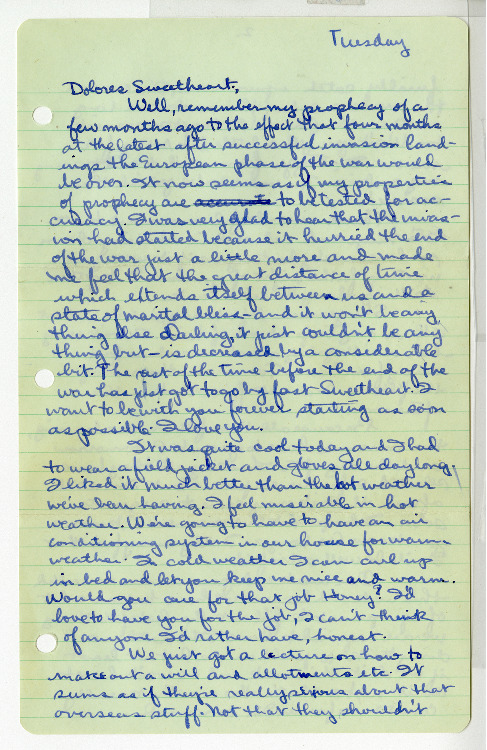 Tuesday
Dolores Sweetheart,
Well, remember my prophecy of a
few months ago to the effect that four months
at the latest after successful invasion land-
ings the European phase of the war would
be over. It now seems as if my properties
of prophecy are to be tested for ac-
curacy. I was very glad to hear that the invas-
ion had started because it hurried the end
of the war just a little more and made
me feel that the great distance of time
which extends itself between us and a
state of marital bliss - and it won't be any
thing else Darling, it just couldn't be any
thing but - is decreased by a considerable
bit. The rest of the time before the end of the
war has just got to go by fast Sweetheart. I
want to be with you forever starting as soon
as possible. I love you.
It was quite cool today and I had
to wear a field jacket and gloves all day long,
I liked it much better than the hot weather
we've been having. I feel miserable in hot
weather. We're going to have to have an air
conditioning system in our house for warm
weather. In cold weather I can curl up
in bed and let you keep me nice and warm.
Would you care for that job Honey? I'd
love to have you for the job, I can't think
of anyone I'd rather have, honest.
We just got a lecture on how to
make out a will and allotments etc. It
seems as if they're really serious about that
overseas stuff. Not that they shouldn't